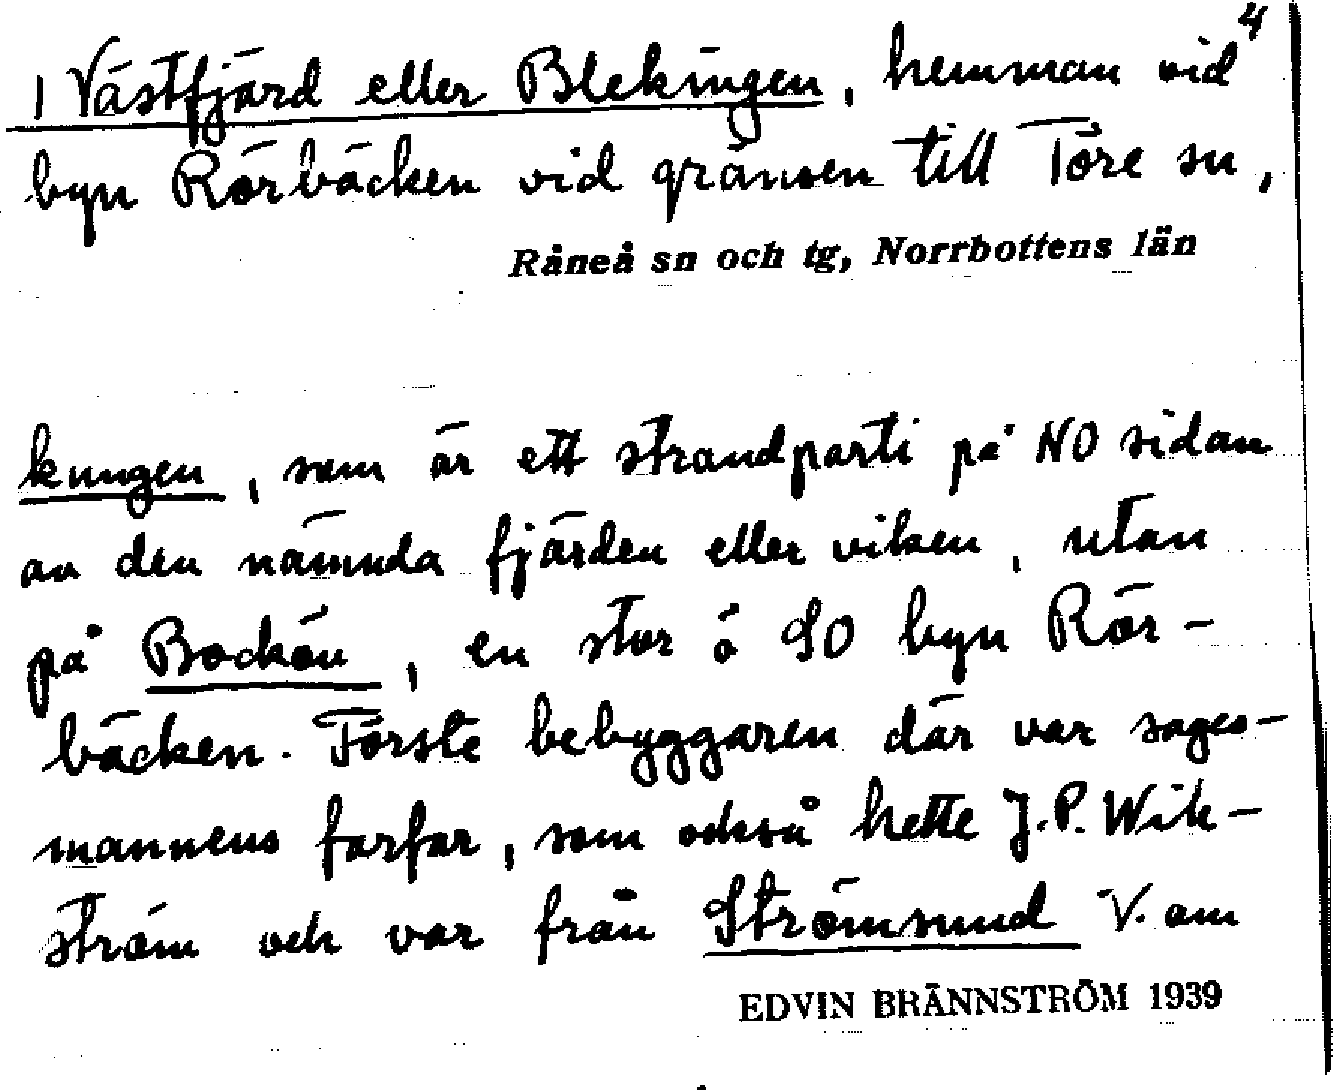 4
1 Västfjärd eller Blekingen, hemman vid
byn Rörbäcken vid gränsen till Töre sn,
Råneå sn och tg, Norrbottens län
kungen, som är ett strandparti på NO sidan
av den nämnda fjärden eller viken, utan
på Bockön, en stor ö SO byn Rör-
bäcken. Förste bebyggaren där var sages-
mannens farfar, som också hette J.P. Wik-
ström och var från Strömsund V. om
EDVIN BRÄNNSTRÖM 1939